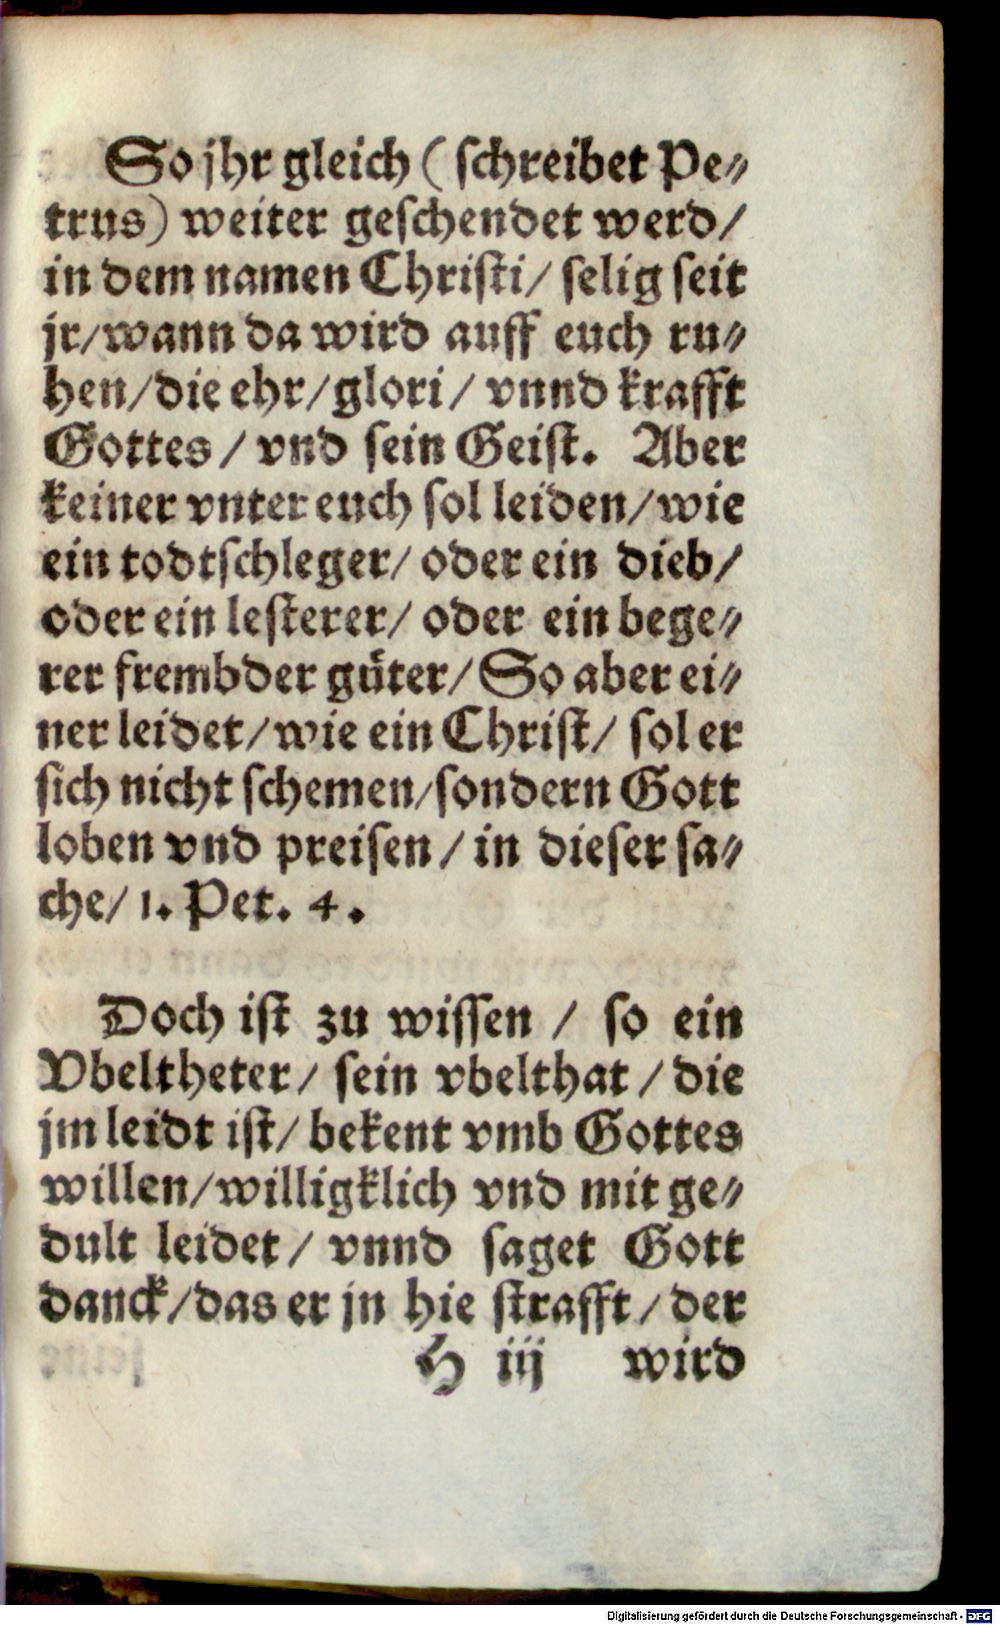 So jhr gleich ( schreibet Pe⸗
trus) weiter geschendet werd/
in dem namen Christi/ selig seit
jr/wann da wird auff euch ru⸗
hen/die ehr/glori/ vnnd krafft
Gottes/ vnd sein Geist. Aber
keiner vnter euch sol leiden/wie
ein todtschleger/ oder ein dieb/
oder ein lesterer/ oder ein bege⸗
rer frembder güter/ So aber ei⸗
ner leidet/wie ein Christ/ sol er
sich nicht schemen/sondern Gott
loben vnd preisen/ in dieser sa⸗
che/ 1. Pet. 4.
Doch ist zu wissen/ so ein
Vbeltheter/ sein vbelthat/ die
jm leidt ist/ bekent vmb Gottes
willen/willigklich vnd mit ge⸗
dult leidet/ vnnd saget Gott
danck/das er jn hie strafft/ der
H iij wird
Digitalisierung gefördert durch die Deutsche Forschungsgemeinschaft - DFG